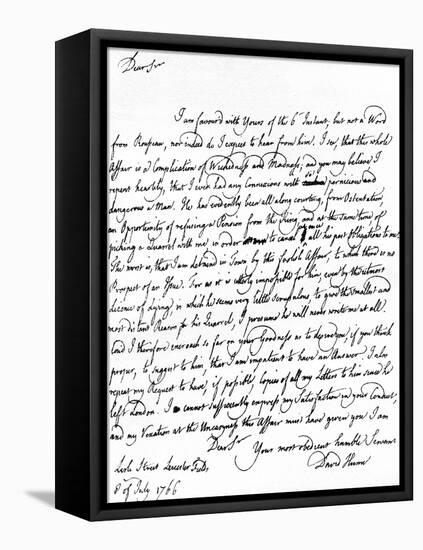 Dear Sir
I am favour'd with Yours of the 6th Instant, but not a Word
from Rousseau, nor indeed do I expect to hear from him. I see, that this whole
Affair is a Complication of Wickedness and Madness, and you may believe I
repent heartily, that I ever had any Connexions with so pernicious and
dangerous a Man. He has evidently been all along courting, from Ostentation,
an Opportunity of refusing a Pension from the King, and at the same time of
picking a Quarrel with me, in order to cancel at once all his past Obligations to me.
The worst is, that I am detained in Town by this foolish Affair, to which there is no
Prospect of an Issue. For as it is utterly impossible for him, even by the utmost
Licence of Lying, in which he seems very little scrupulous, to give the smallest and
most distant Reason for his Quarrel, I presume he will never write me at all.
Coud I therefore encroach so far on your Goodness as to desire you, if you think
proper, to suggest to him, that I am impatient to have an Answer. I also
repeat my Request to have, if possible, copies of all my Letters to him since he
left London. I cannot sufficiently express my Satisfaction in your Conduct,
and my Vexation at the Uneasyness this Affair must have given you. I am
Dear Sir
Your most obedient humble Servant
David Hume
Lisle Street Leicester Fields
8 of July 1766